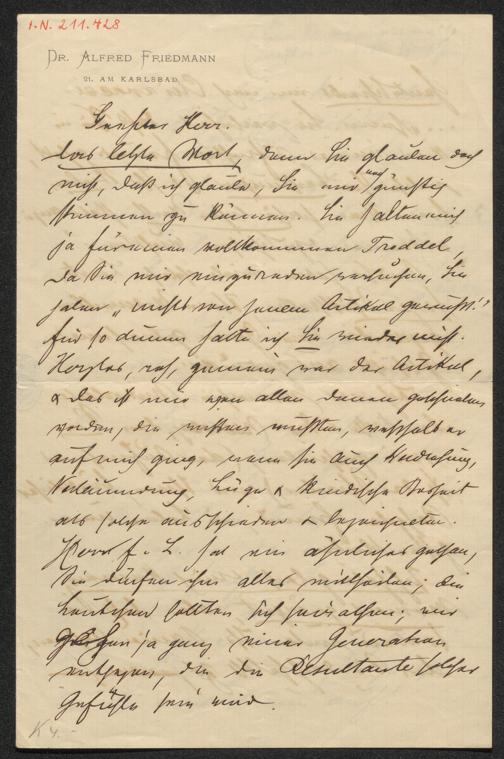 I.N. 211.428
DR. ALFRED FRIEDMANN
21. AM KARLSBAD.
Geehrter Herr.
Das letzte Wort, denn Sie glauben doch
nicht, daß ich glaube, Sie mir noch günstig
stimmen zu können. Sie halten mich
ja für einen vollkommenen Troddel,
da Sie mir einzureden versuchen, Sie
haben „nichts von jenem Artikel gewußt!"
für so dumm halte ich Sie wieder nicht.
Herzlos, roh, gemein war der Artikel,
& das ist mir von allen denen geschrieben
worden, die wissen mußten, weßhalb er
auf mich ging, wenn sie auch Verdrehung,
Verläumdung, Lüge & kindische Bosheit
als solche ausschieden & bezeichneten.
Herr F. Z. hat nie ähnliches gethan,
Sie dürfen ihm alles mittheilen; die
sollten sich; wir
gehen ja ganz einer Generation
entgegen, die die Resultante solcher
Gefühle sein wird.
K 4.-